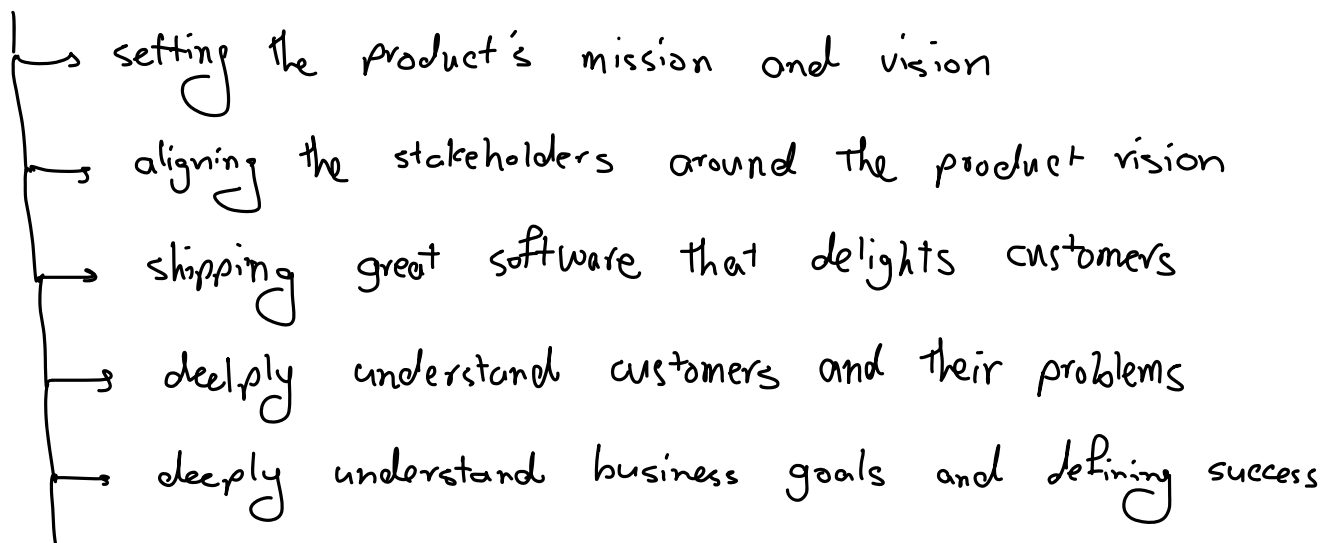 setting the product's mission and vision
aligning the stakeholders around the product vision
shipping great software that delights customers
deelply understand customers and their problems
deeply understand business goals and defining success